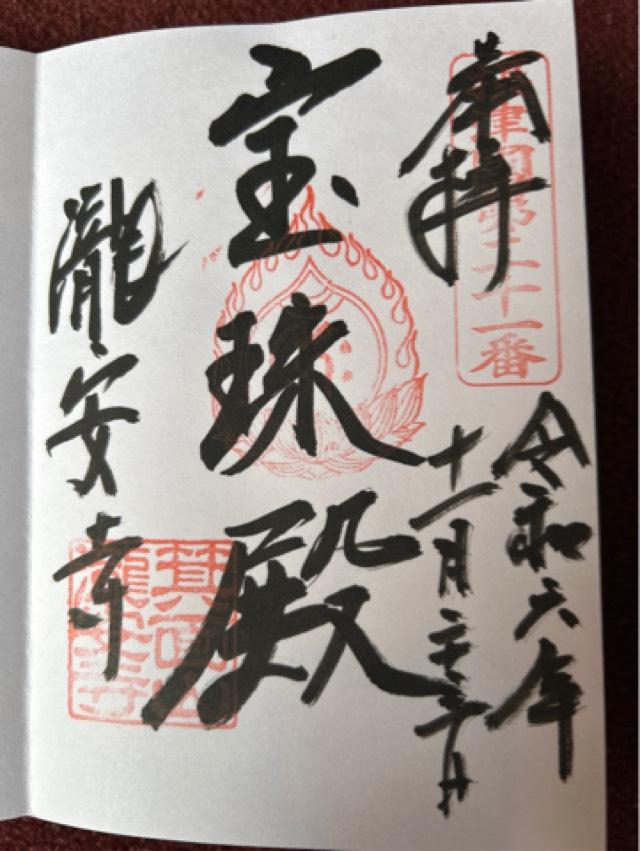 奉拝
十一番
令和六年
十一月二十三日
宝珠殿
瀧安寺
箕面山
瀧安寺